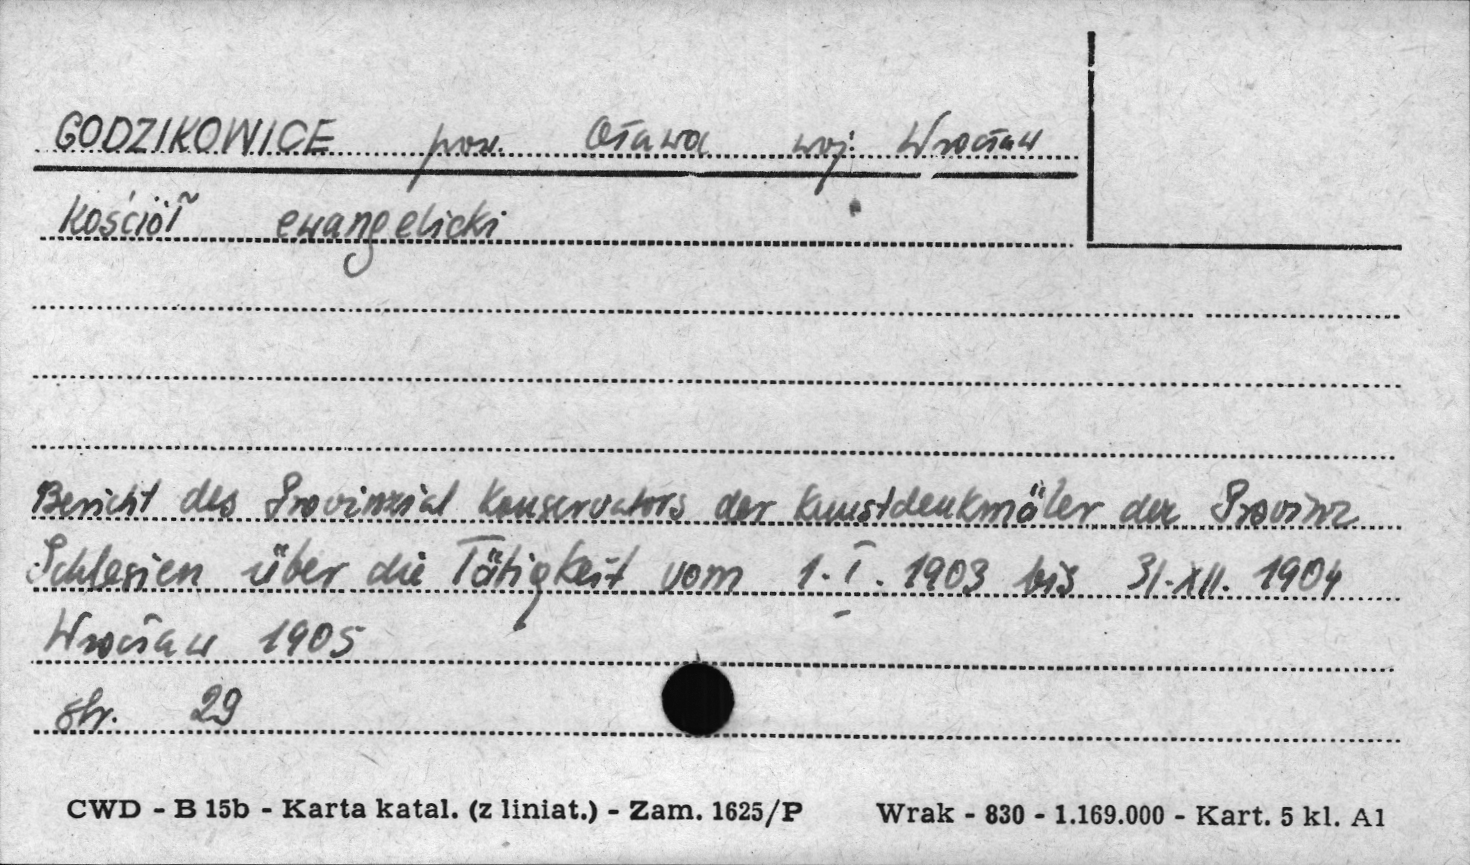 GODZIKOWICE pow. Oława woj. Wrocław
Kościół ewangelicki
Bericht des Provinzial Konservators der Kunstdenkmäler der Provinz
Schlesien über die Tätigkeit vom 1. I. 1903 bis 31. XII. 1904
Wrocław 1905
str. 29
CWD - B 15b - Karta katal. (z liniat.) - Zam. 1625/P Wrak - 830 - 1.169.000 - Kart. 5 kl. A1